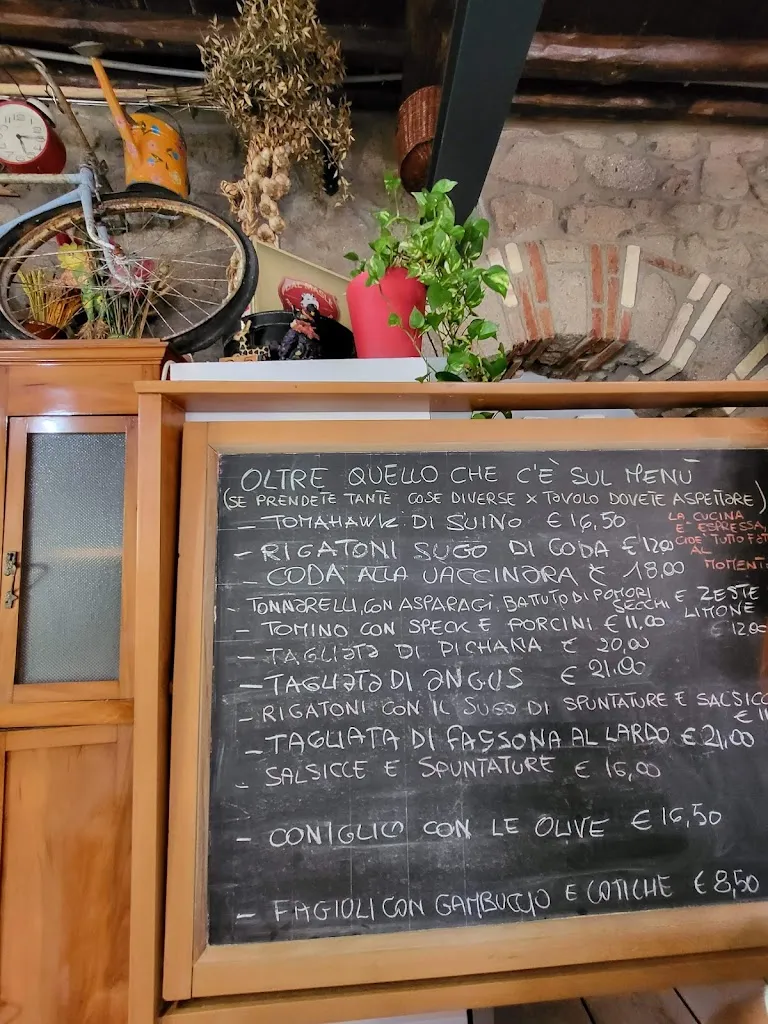 OLTRE QUELLO CHE C'È SUL MENÙ
(SE PRENDETE TANTE COSE DIVERSE X TAVOLO DOVETE ASPETTARE)
LA CUCINA
E' ESPRESSA,
CIOE' TUTTO
AL
MOMENTO
- TOMAHAWK DI SUINO €16,50
- RIGATONI SUGO DI CODA €12,00
- CODA ALLA VACCINARA € 18,00
- TONNARELLI, CON ASPARAGI, BATTUTO DI POMORI SECCHI E ZESTE LIMONE
- TOMINO CON SPECK E PORCINI €11,00
- TAGLIATA DI PICHANA € 20,00
- TAGLIATA DI ANGUS € 21,00
- RIGATONI CON IL SUGO DI SPUNTATURE E
- TAGLIATA DI FASSONA AL LARDO €21,00
- SALSICCE E SPUNTATURE € 16,00
- CONIGLIO CON LE OLIVE €16,50
- FAGIOLI CON GAMBUCCIO E COTICHE €8,50